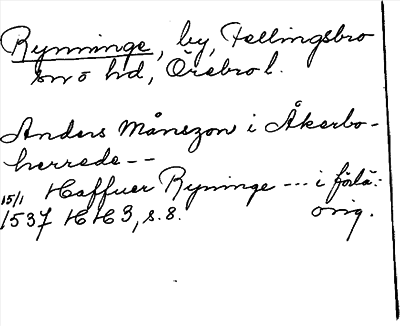 Rynninge, by, Fellingsbro
sn o hd, Örebro l.
Anders Månszon i Åkerbo-
herrede--
Haffuer Ryninge --- i förlä:
15/1 1537 HH 3, s. 8. orig.